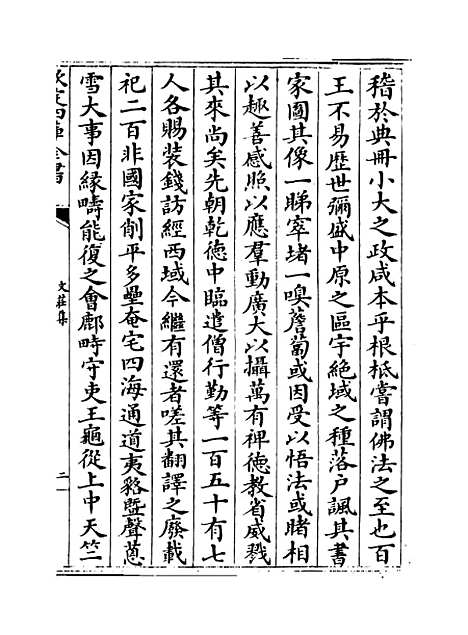 稽於典冊小大之政咸本乎根柢嘗謂佛法之至也百
王不易歴世彌盛中原之區宇絶域之種落户諷其書
家圖其像一睇窣堵一嗅薝蔔或因受以悟法或睹相
以趣善感照以應羣動廣大以攝萬有裨徳教省威戮
其來尚矣先朝乾徳中臨遣僧行勤等一百五十有七
人各賜装錢訪經西域今繼有還者嗟其翻譯之廢載
祀二百非國家削平多壘奄宅四海通道夷貉曁聲蔥
雪大事因縁疇能復之會鄜畤守吏王龜從上中天竺
文莊集
二